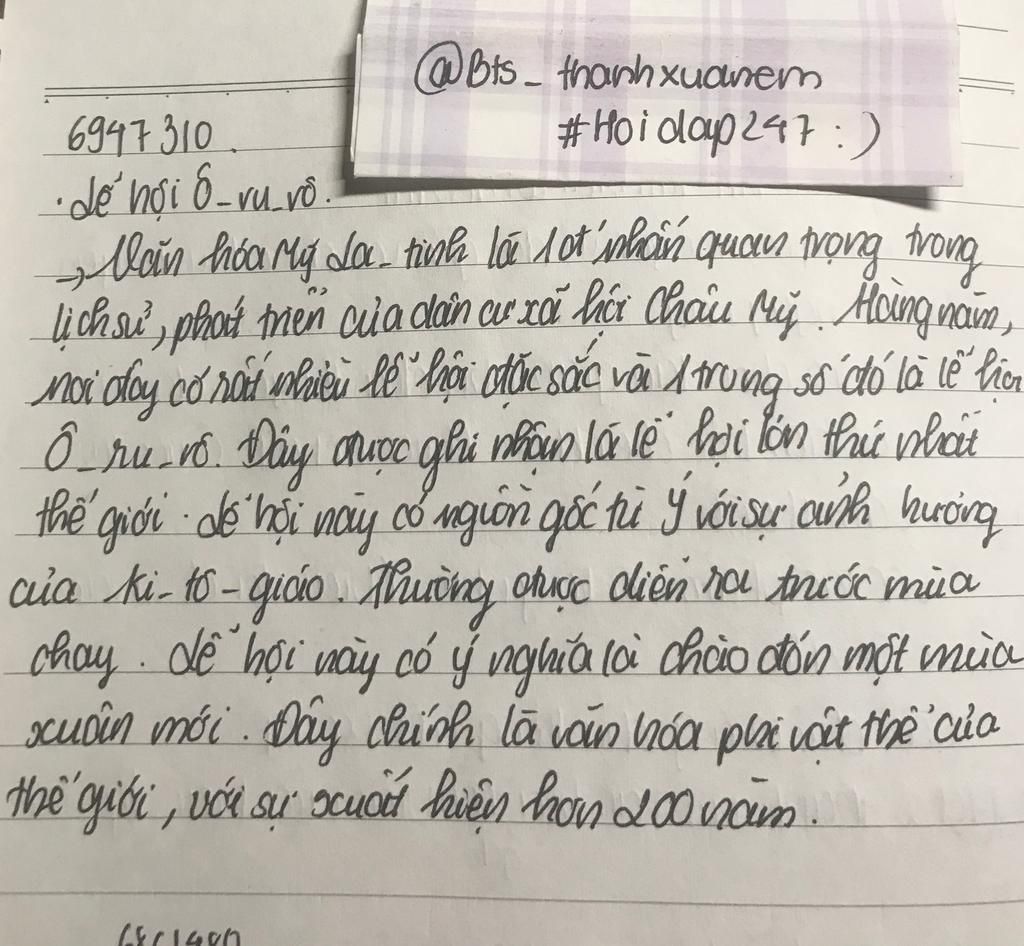 @Bts_thanhxuanem
#Hoidap247:)
6947310.
. Lễ hội Ô_ru_rô.
→ Văn hóa Mỹ La_tinh là 1 cột nhấn quan trọng trong
lịch sử, phát triển của dân cư xã hội Châu Mỹ. Hàng năm,
nơi đây có rất nhiều lễ hội đặc sắc và 1 trong số đó là lễ hội
Ô_ru_rô. Đây được ghi nhận là lễ hội lớn thứ nhất
thế giới. Lễ hội này có nguồn gốc từ Ý với sự ảnh hưởng
của Ki_tô_giáo. Thường được diễn ra trước mùa
chay. Lễ hội này có ý nghĩa là chào đón một mùa
xuân mới. Đây chính là văn hóa phi vật thể của
thế giới, với sự xuất hiện hơn 200 năm.